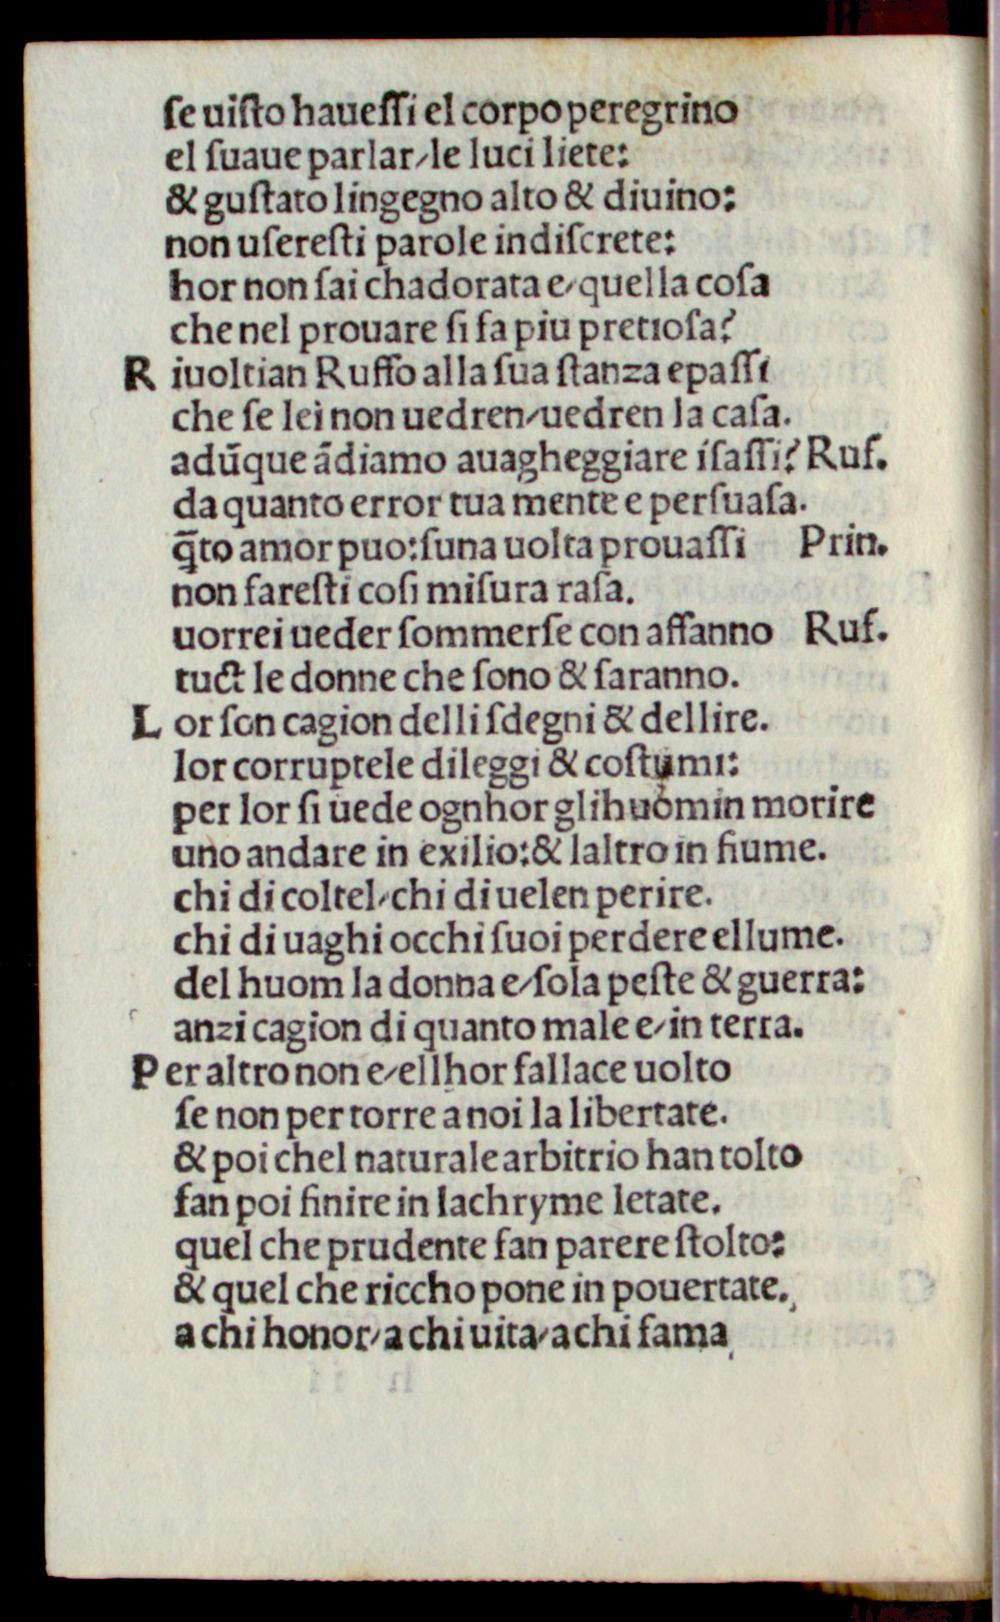 ſe uiſto haueſſi el corpo peregrino
el ſuaue parlar/le luci liete:
& guſtato lingegno alto & diuino:
non uſereſti parole indiſcrete:
hor non ſai chadorata e/quella coſa
che nel prouare ſi fa piu pretioſa?
R iuoltian Ruffo alla ſua ſtanza epaſſi
che ſe lei non uedren/uedren la caſa.
adūque ādiamo auagheggiare iſaſſi? Ruf.
da quanto error tua mente e perſuaſa.
q̄to amor puo:ſuna uolta prouaſſi Prin.
non fareſti coſi miſura raſa.
uorrei ueder ſommerſe con affanno Ruf.
tuct le donne che ſono & ſaranno.
L or ſon cagion delli ſdegni & dellire.
lor corruptele dileggi & coſtumi:
per lor ſi uede ognhor glihuomin morire
uno andare in exilio:& laltro in fiume.
chi di coltel/chi di uelen perire.
chi di uaghi occhi ſuoi perdere ellume.
del huom la donna e/ſola peſte & guerra:
anzi cagion di quanto male e/in terra.
P er altro non e/ellhor fallace uolto
ſe non per torre a noi la libertate.
& poi chel naturale arbitrio han tolto
fan poi finire in lachryme letate.
quel che prudente fan parere ſtolto:
& quel che riccho pone in pouertate.
a chi honor/a chi uita/a chi fama